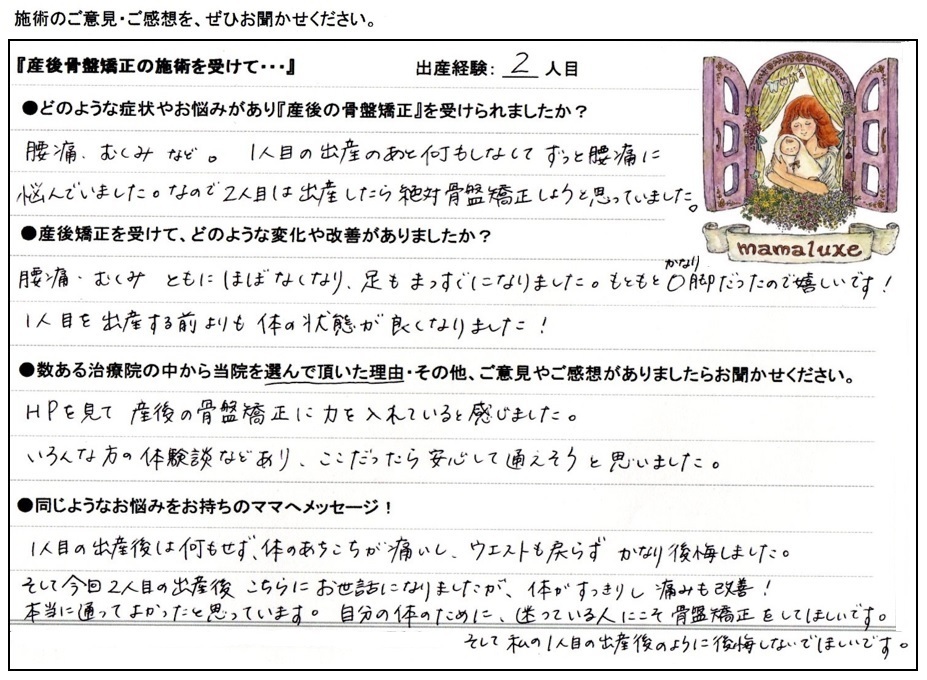 施術のご意見・ご感想を、ぜひお聞かせください。
『産後骨盤矯正の施術を受けて・・・』 出産経験： 2 人目
●どのような症状やお悩みがあり『産後の骨盤矯正』を受けられましたか？
腰痛、むくみ など。 1人目の出産のあと何もしなくて ずっと腰痛に
悩んでいました。なので2人目は出産したら絶対骨盤矯正しようと思っていました。
mamaluxe
●産後矯正を受けて、どのような変化や改善がありましたか？
腰痛・むくみ ともに ほぼなくなり、足も まっすぐになりました。もともと かなり O脚だったので嬉しいです！
1人目を出産する前よりも 体の状態が 良くなりました！
●数ある治療院の中から当院を選んで頂いた理由・その他、ご意見やご感想がありましたらお聞かせください。
HPを見て 産後の骨盤矯正に力を入れていると感じました。
いろんな方の体験談などあり、ここだったら安心して通えそうと思いました。
●同じようなお悩みをお持ちのママへメッセージ！
1人目の出産後は何もせず、体のあちこちが痛いし、ウエストも戻らず かなり後悔しました。
そして今回2人目の出産後 こちらに お世話になりましたが、体がすっきりし 痛みも改善！
本当に通ってよかったと思っています。 自分の体のために、迷っている人にこそ骨盤矯正をしてほしいです。
そして私の1人目の出産後のように後悔しないでほしいです。